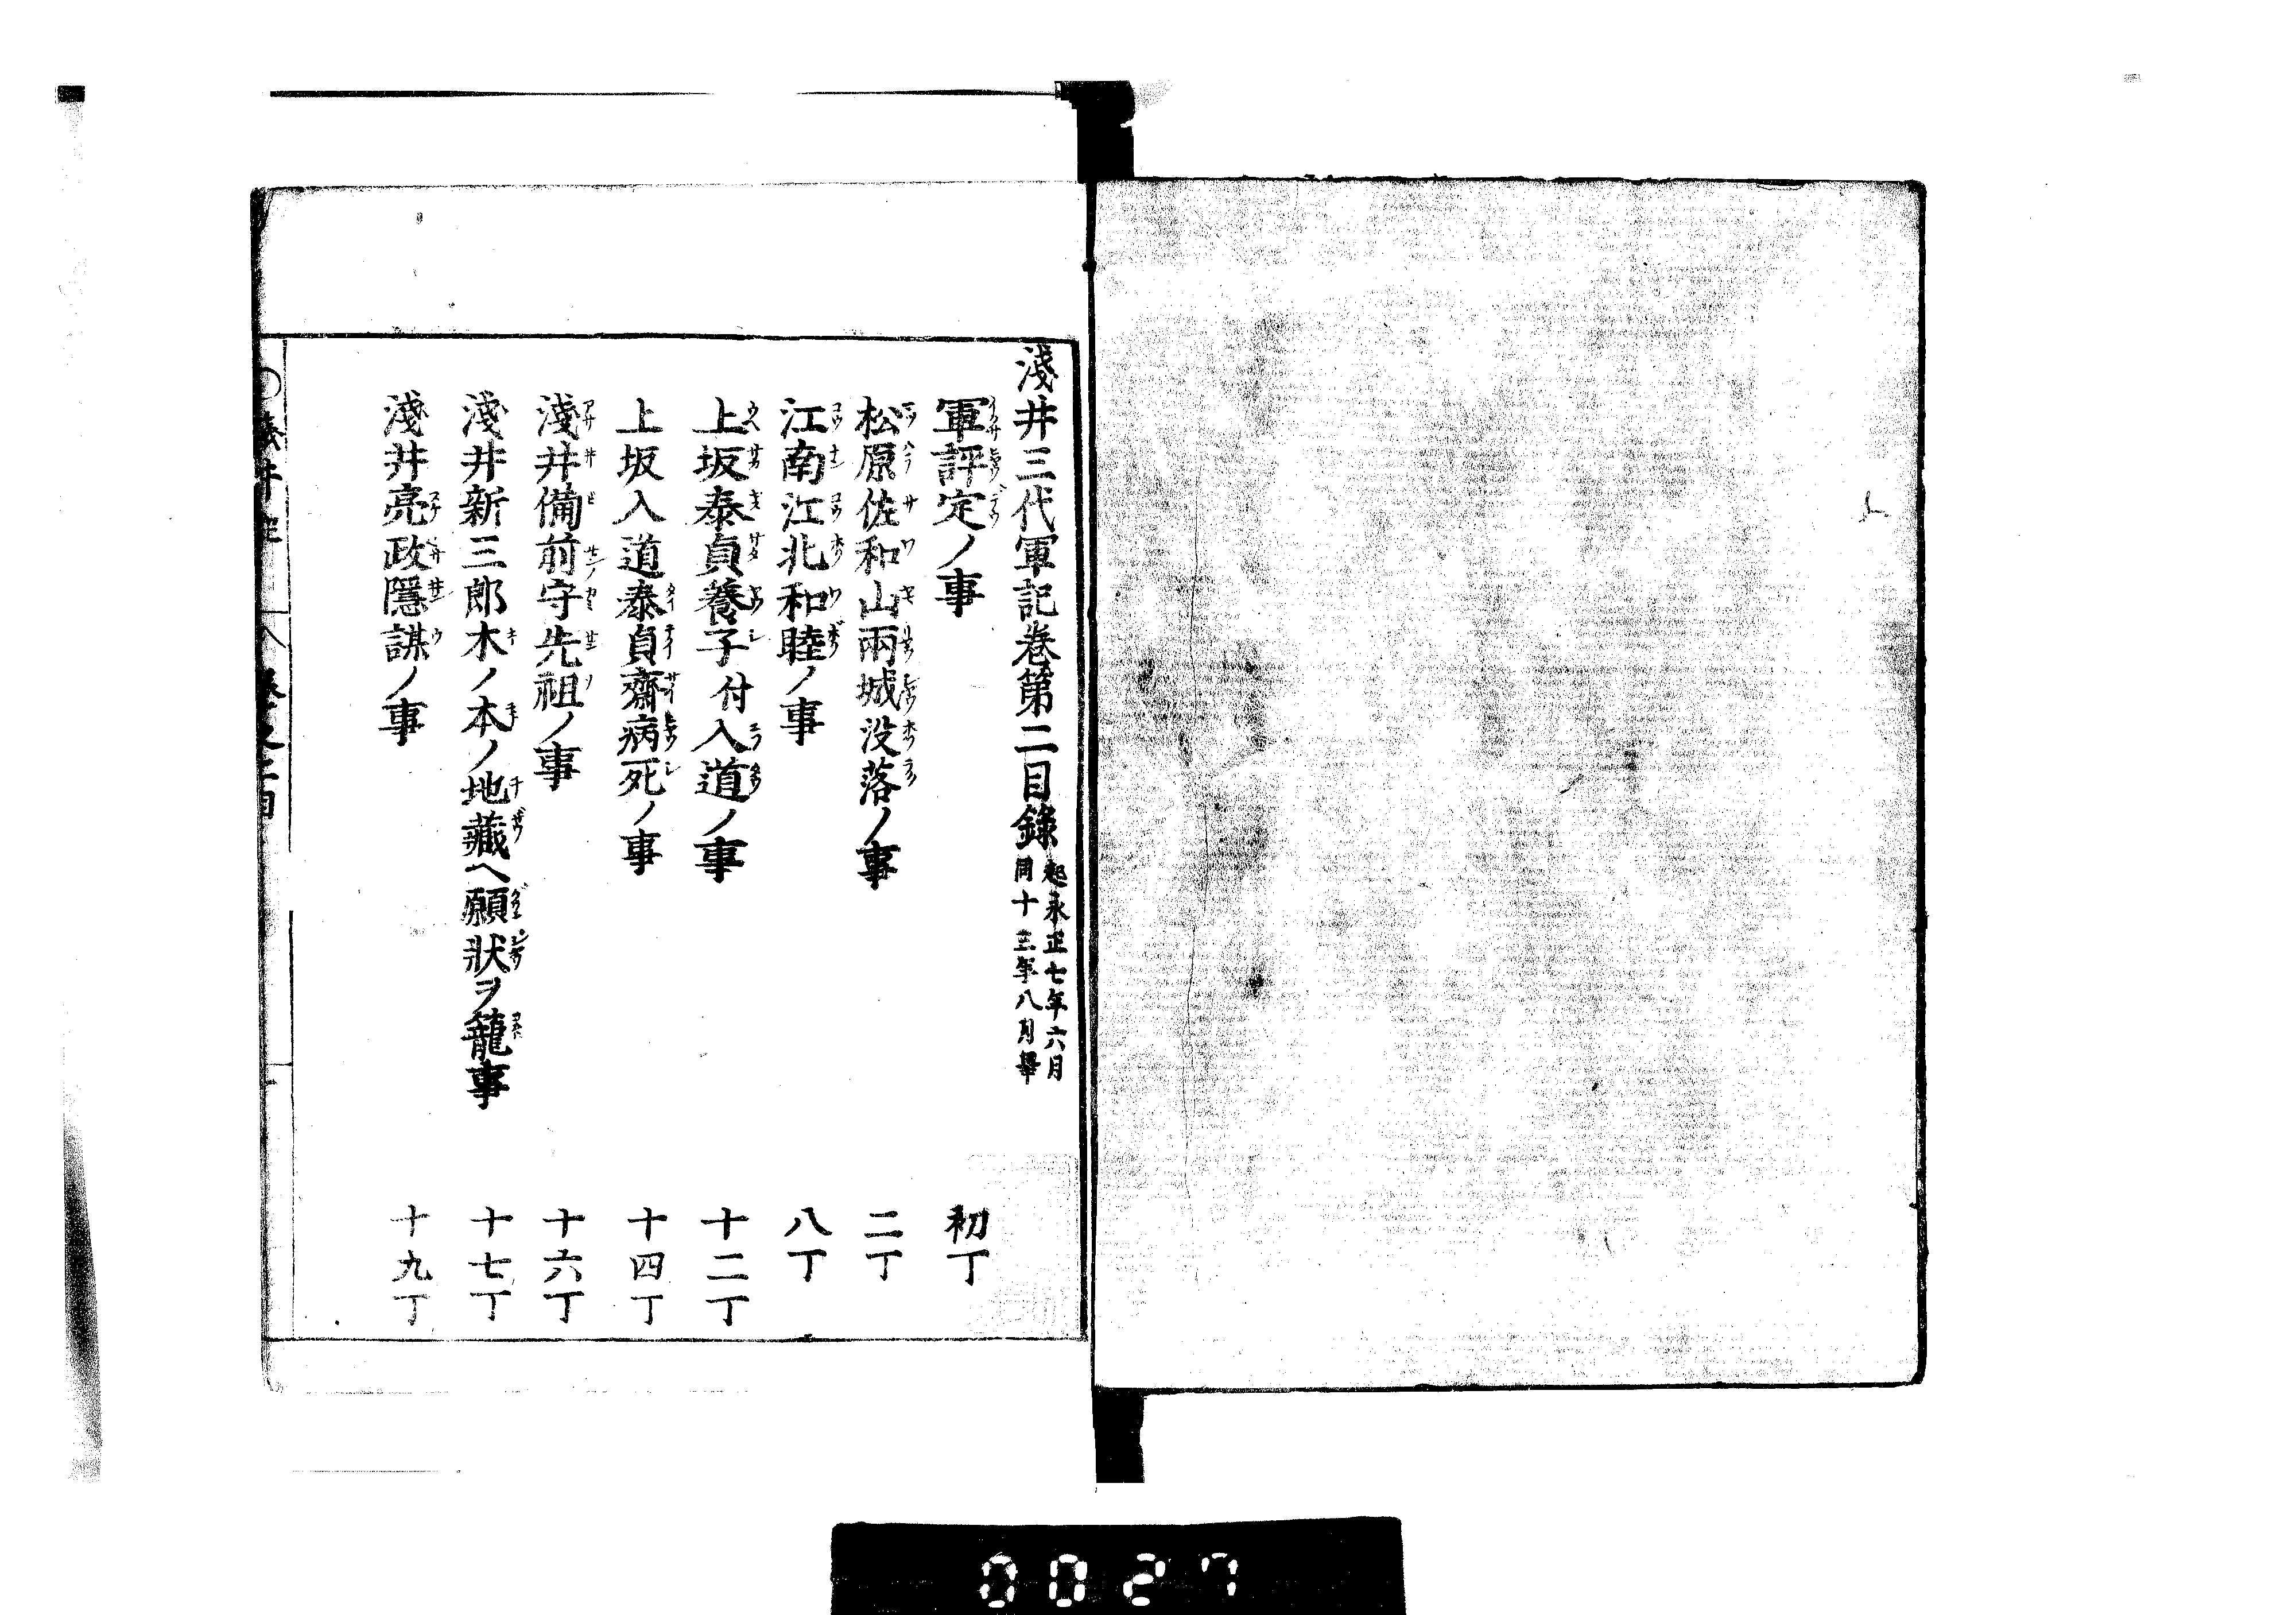 淺井三代軍記卷第二目錄 起永正七年六月
同十三年八月畢
軍評定ノ事 初丁
松原佐和山兩城没落ノ事 二丁
江南江北和睦ノ事 八丁
上坂泰貞養子付入道ノ事 十二丁
上坂入道泰貞齋病死ノ事 十四丁
淺井備前守先祖ノ事 十六丁
淺井新三郎木ノ本ノ地藏ヘ願狀ヲ籠事 十七丁
淺井亮政隱謀ノ事 十九丁
0027